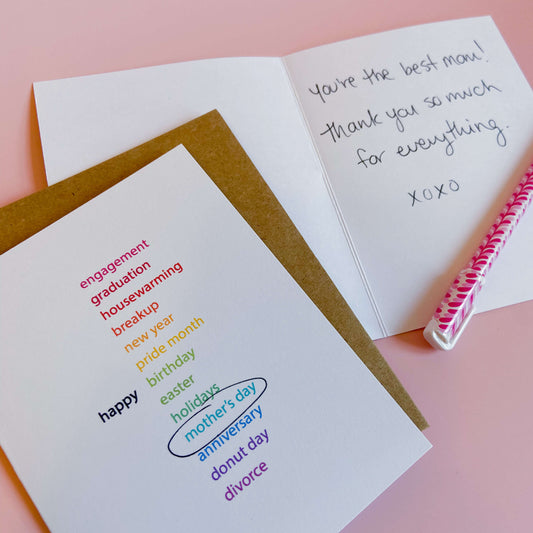 you're the best mom!
thank you so much
for everything.
xoxo
engagement
graduation
housewarming
breakup
new year
pride month
birthday
easter
happy
holidays
mother's day
anniversary
donut day
divorce